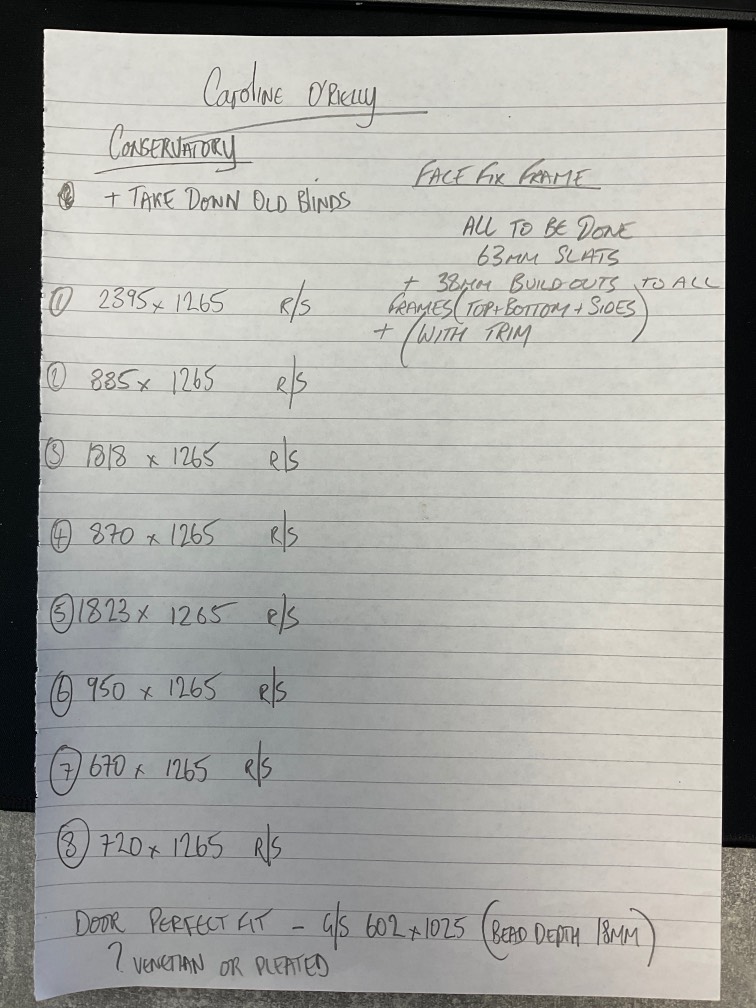 Caroline O'Rielly
Conservatory
+ Take Down Old Blinds
Face Fix Frame
All to be done
63mm slats
+ 38mm Buildouts to all
frames (Top + Bottom + Sides)
+ (with trim
① 2395 x 1265 R/S
② 885 x 1265 R/S
③ 1818 x 1265 R/S
④ 870 x 1265 R/S
⑤ 1823 x 1265 R/S
⑥ 950 x 1265 R/S
⑦ 670 x 1265 R/S
⑧ 720 x 1265 R/S
Door Perfect Fit - G/S 602 x 1025 (Bead Depth 18mm)
? Venetian or Pleated